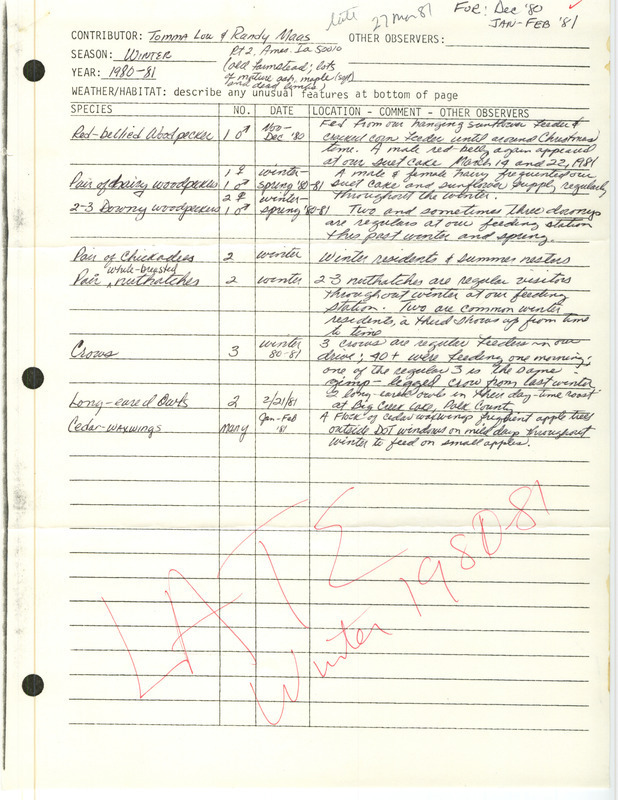 late 27 Mar 81 FOR: Dec '80
JAN-FEB '81
CONTRIBUTOR: Tomma Lou & Randy Maas OTHER OBSERVERS:
SEASON: WINTER Rt 2, Ames, Ia 50010
YEAR: 1980-81 (old farmstead; lots
of mature ash, maple (soft)
and dead limbs)
WEATHER/HABITAT: describe any unusual features at bottom of page
SPECIES NO. DATE LOCATION - COMMENT - OTHER OBSERVERS
Fed from our hanging sunflower feeder &
Red-bellied Woodpecker 1 ♂ Nov- Dec '80 cracked corn feeder until around Christmas
time. A male red-belly again appeared
at our suet cake March 19 and 22, 1981
1 ♀ winter- A male & female hairy frequented our
Pair of hairy woodpeckers 1 ♂ spring '80-81 suet cake and sunflower supply regularly
2 ♀ winter- throughout the winter.
2-3 Downy woodpeckers 1 ♂ spring '80-81 Two and sometimes three downys
are regulars at our feeding station
this past winter and spring.
Pair of Chickadees 2 winter Winter residents & summer nestors
white-breasted
Pair, nuthatches 2 winter 2-3 nuthatches are regular visitors
throughout winter at our feeding
station. Two are common winter
residents, a third shows up from time
to time
Crows 3 winter 80-81 3 crows are regular feeders in our
drive; 40+ were feeding one morning;
one of the regular 3 is the same
gimp-legged crow from last winter
Long-eared Owls 2 2/21/81 2 long-eared owls in their day-time roost
at Big Creek Lake, Polk County
Cedar-waxwings Many Jan-Feb '81 A flock of cedar waxwings frequent apple trees
outside DOT windows on mild days throughout
winter to feed on small apples.
LATE
Winter 1980-81